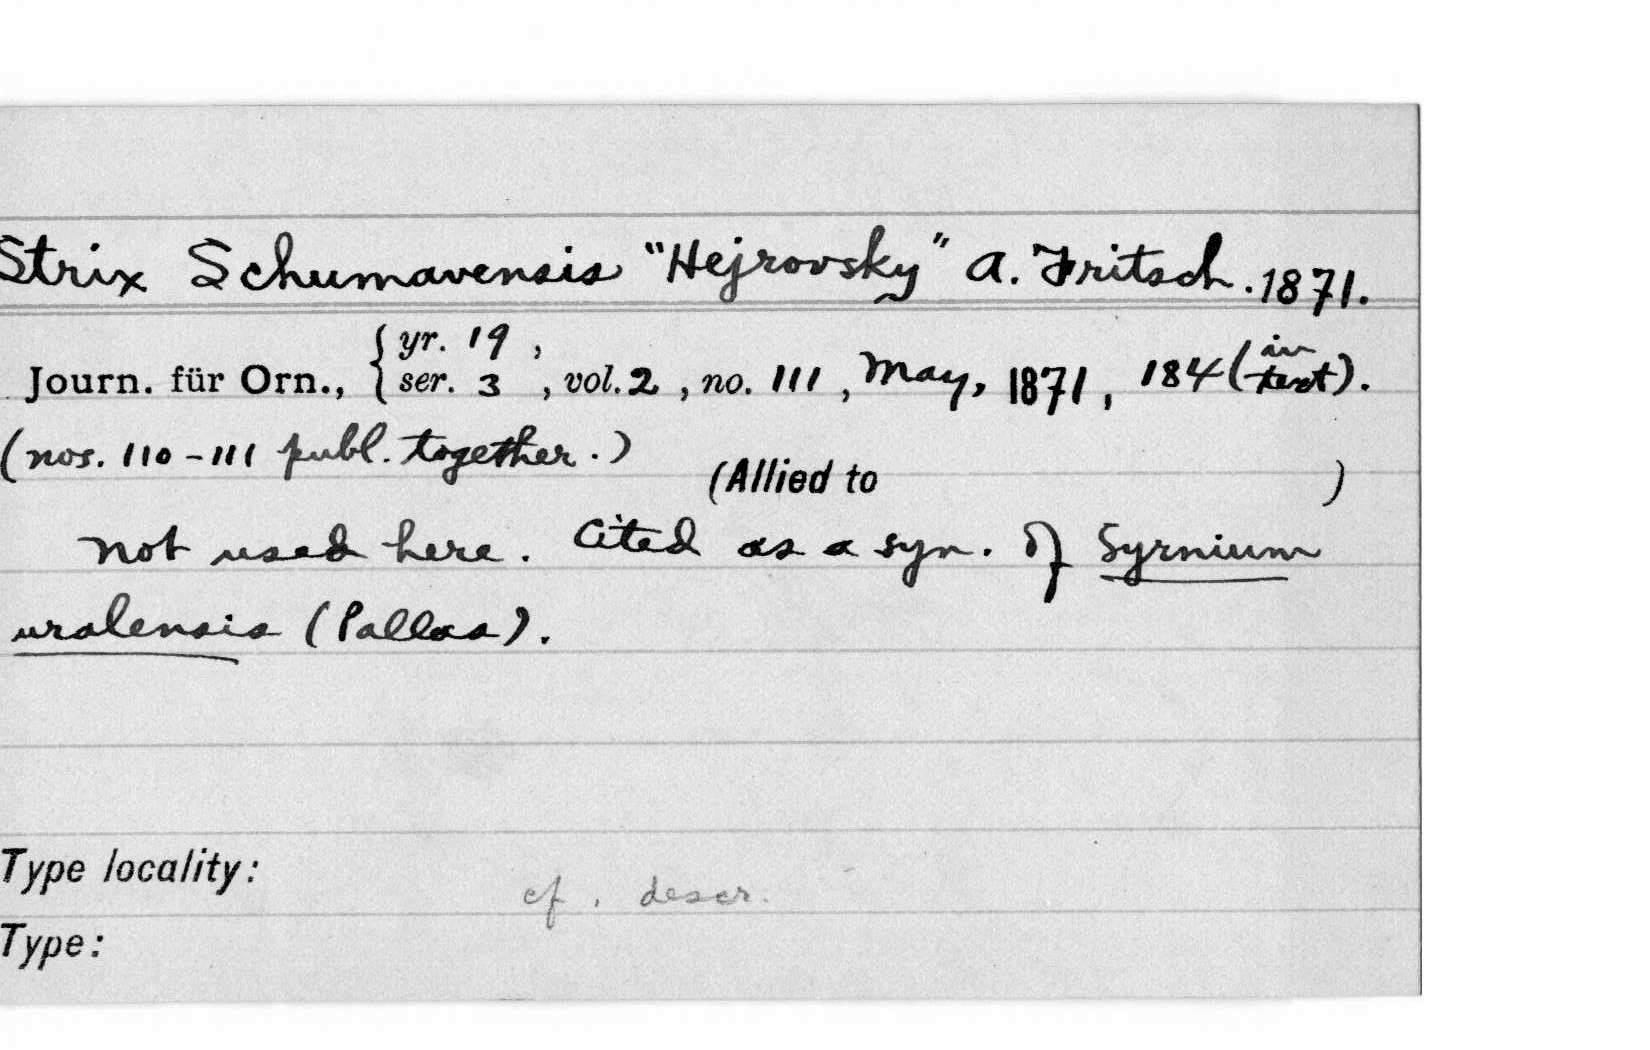 Strix Schumavensis "Hejrovsky" A. Fritsch. 1871.
Journ. für Orn., { yr. 19 , ser. 3 , vol. 2 , no. 111 , May, 1871, 184 (in text).
(nos. 110-111 publ. together.)
(Allied to )
Not used here. Cited as a syn. of Syrnium
uralensis (Pallas).
Type locality:
cf. descr.
Type: